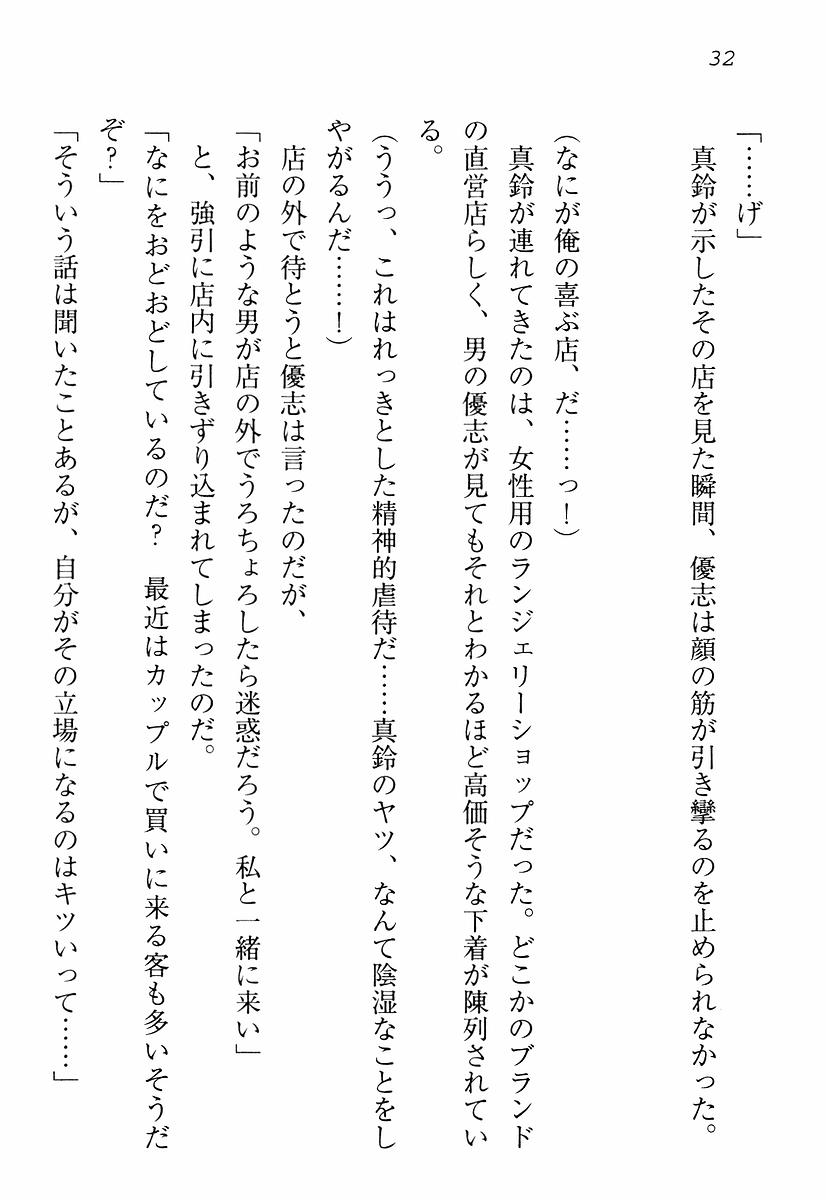 32
「……げ」
真鈴が示したその店を見た瞬間、優志は顔の筋が引き攣るのを止められなかった。
（なにが俺の喜ぶ店、だ……っ！）
真鈴が連れてきたのは、女性用のランジェリーショップだった。どこかのブランド
の直営店らしく、男の優志が見てもそれとわかるほど高価そうな下着が陳列されてい
る。
（ううっ、これはれっきとした精神的虐待だ……真鈴のヤツ、なんて陰湿なことをし
やがるんだ……！）
店の外で待とうと優志は言ったのだが、
「お前のような男が店の外でうろちょろしたら迷惑だろう。私と一緒に来い」
と、強引に店内に引きずり込まれてしまったのだ。
「なにをおどおどしているのだ？　最近はカップルで買いに来る客も多いそうだ
ぞ？」
「そういう話は聞いたことあるが、自分がその立場になるのはキツいって……」